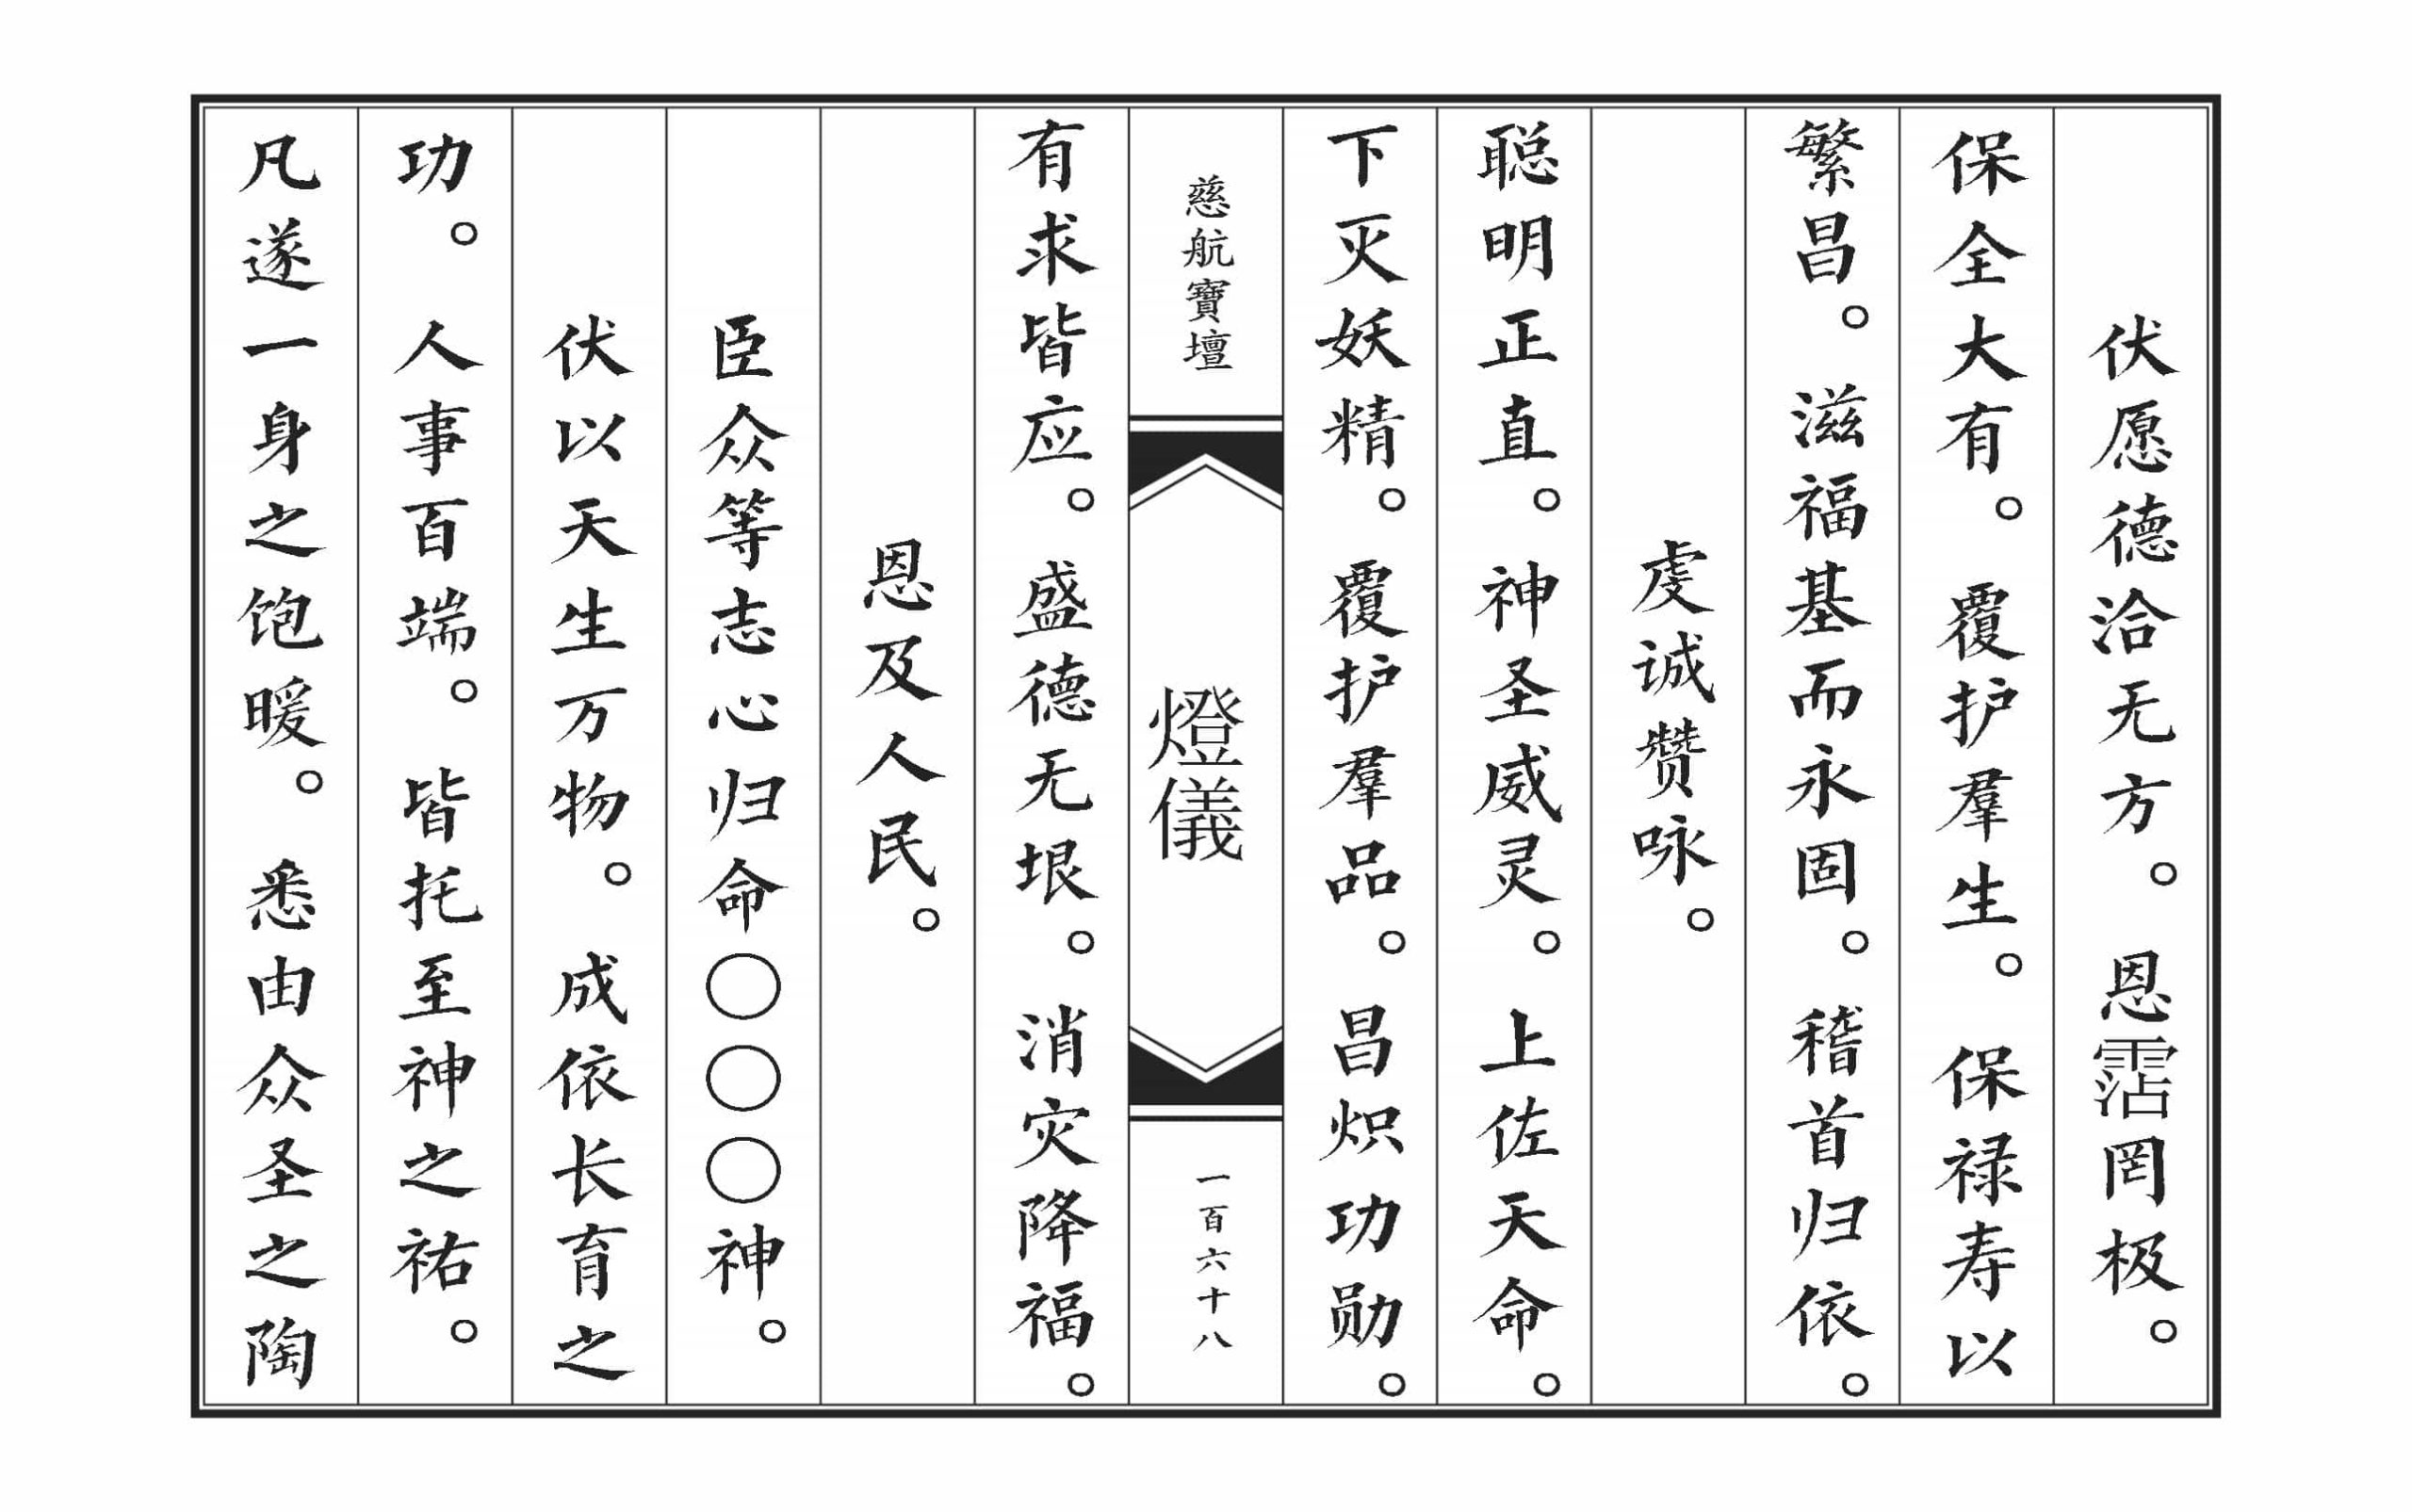 伏愿德洽无方。恩霑罔极。
保全大有。覆护羣生。保禄寿以
繁昌。滋福基而永固。稽首归依。
虔诚赞咏。
聪明正直。神圣威灵。上佐天命。
下灭妖精。覆护羣品。昌炽功勋。
慈航寶壇
燈儀
一百六十八
有求皆应。盛德无垠。消灾降福。
恩及人民。
臣众等志心归命〇〇〇神。
伏以天生万物。成依长育之
功。人事百端。皆托至神之祐。
凡遂一身之饱暖。悉由众圣之陶